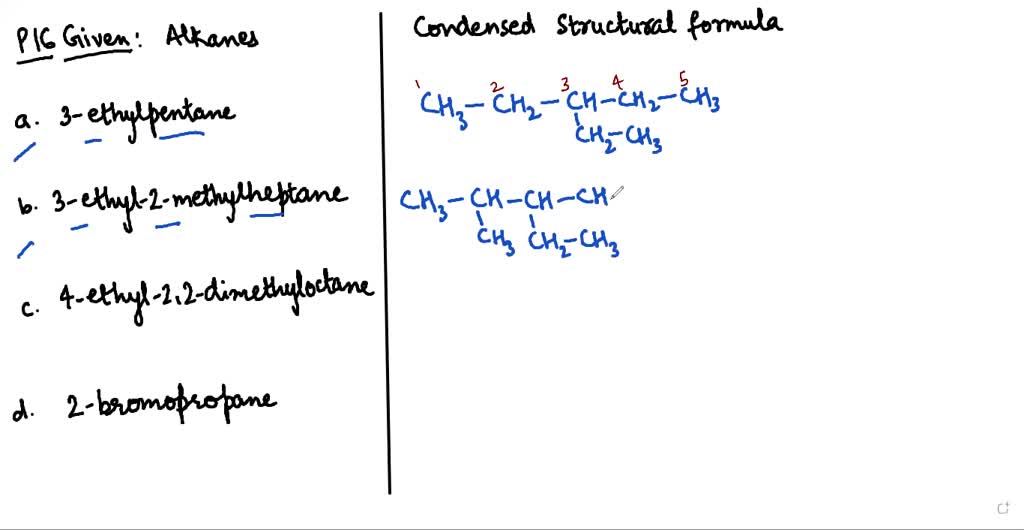 P16 Given: Alkanes
a. 3-ethylpentane
b. 3-ethyl-2-methylheptane
c. 4-ethyl-2,2-dimethyloctane
d. 2-bromopropane
Condensed Structural formula
1 2 3 4 5
CH3-CH2-CH-CH2-CH3
CH2-CH3
CH3-CH-CH-CH
CH3 CH2-CH3